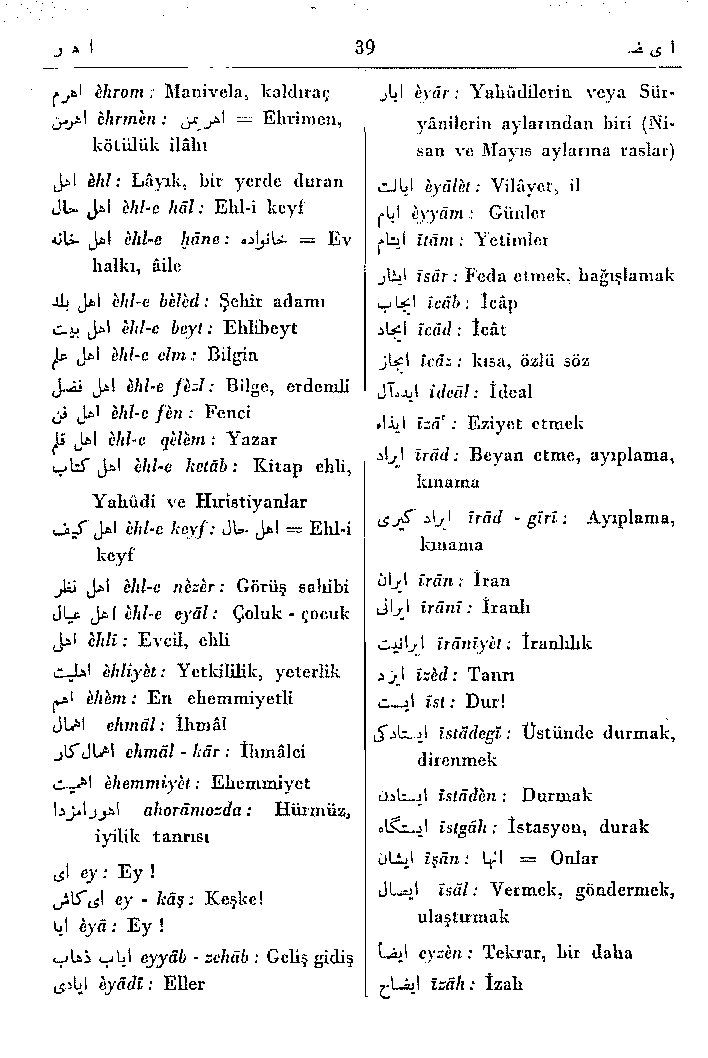 ا ه ر
39
ا ی ض
اهرم èhrom : Manivela, kaldıraç
اهرمن èhrmèn : اهریمن = Ehrimen,
kötülük ilâhı
اهل èhl : Lâyık, bir yerde duran
اهل حال èhl-e hāl : Ehl-i keyf
اهل خانه èhl-e ḫāne : خانواده = Ev
halkı, âile
اهل بلد èhl-e bèlèd : Şehir adamı
اهل بیت èhl-e beyt : Ehlibeyt
اهل علم èhl-e elm : Bilgin
اهل فضل èhl-e fèzl : Bilge, erdemli
اهل فن èhl-e fèn : Fenci
اهل قلم èhl-e qèlèm : Yazar
اهل کتاب èhl-e ketāb : Kitap ehli,
Yahûdi ve Hıristiyanlar
اهل کیف èhl-e keyf : اهل حال = Ehl-i
keyf
اهل نظر èhl-e nèzèr : Görüş sahibi
اهل عیال èhl-e eyāl : Çoluk - çocuk
اهلی èhlī : Evcil, ehli
اهلیت èhliyèt : Yetkililik, yeterlik
اهم èhèm : En ehemmiyetli
اهمال ehmāl : İhmâl
اهمال کار ehmāl - kār : İhmâlci
اهمیت èhemmiyèt : Ehemmiyet
اهورامزدا ahorāmozda : Hürmüz,
iyilik tanrısı
ای ey : Ey !
ای کاش ey - kāş : Keşke!
ایا èyā : Ey !
ایاب ذهاب eyyāb - zehāb : Geliş gidiş
ایادی èyādī : Eller
ایار èyār : Yahûdilerin veya Sür-
yânilerin aylarından biri (Ni-
san ve Mayıs aylarına raslar)
ایالت èyālèt : Vilâyet, il
ایام èyyām : Günler
ایتام ītām : Yetimler
ایثار īsār : Feda etmek, bağışlamak
ایجاب īcāb : İcâp
ایجاد īcād : İcât
ایجاز īcāz : kısa, özlü söz
ایدآل ideāl : İdeal
ایذاء īzā' : Eziyet etmek
ایراد īrād : Beyan etme, ayıplama,
kınama
ایراد گیری īrād - gīrī : Ayıplama,
kınama
ایران īrān : İran
ایرانی īrānī : İranlı
ایرانیت īrānīyèt : İranlılık
ایزد īzèd : Tanrı
ایست īst : Dur!
ایستادگی īstādegī : Üstünde durmak,
direnmek
ایستادن īstādèn : Durmak
ایستگاه īstgāh : İstasyon, durak
ایشان īşān : آنها = Onlar
ایصال īsāl : Vermek, göndermek,
ulaştırmak
ایضا eyzèn : Tekrar, bir daha
ایضاح īzāh : İzah